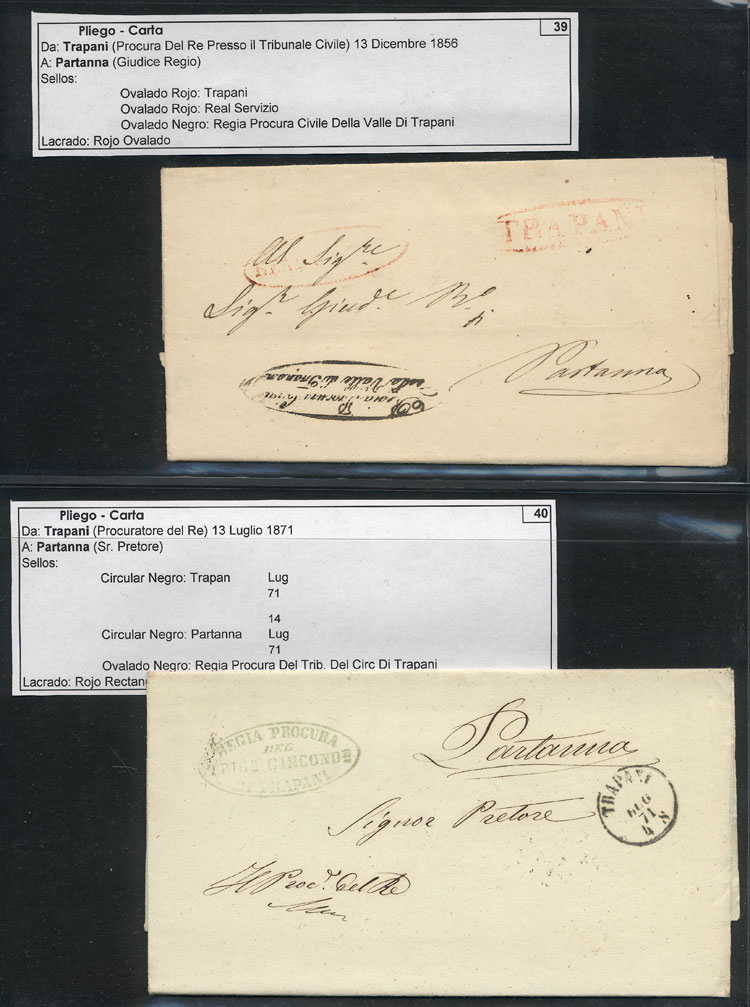 Pliego - Carta
39
Da: Trapani (Procura Del Re Presso il Tribunale Civile) 13 Dicembre 1856
A: Partanna (Giudice Regio)
Sellos:
Ovalado Rojo: Trapani
Ovalado Rojo: Real Servizio
Ovalado Negro: Regia Procura Civile Della Valle Di Trapani
Lacrado: Rojo Ovalado
TRAPANI
Al Sigre
Sigr Giude Ro
Partanna
Valle di Trapani
Pliego - Carta
40
Da: Trapani (Procuratore del Re) 13 Luglio 1871
A: Partanna (Sr. Pretore)
Sellos:
Circular Negro: Trapan Lug
71
14
Circular Negro: Partanna Lug
71
Ovalado Negro: Regia Procura Del Trib. Del Circ Di Trapani
Lacrado: Rojo
REGIA PROCURA
DEL
DI TRAPANI
Partanna
TRAPANI
LUG
71
4 S
Signor Pretore
Il Procr del Re